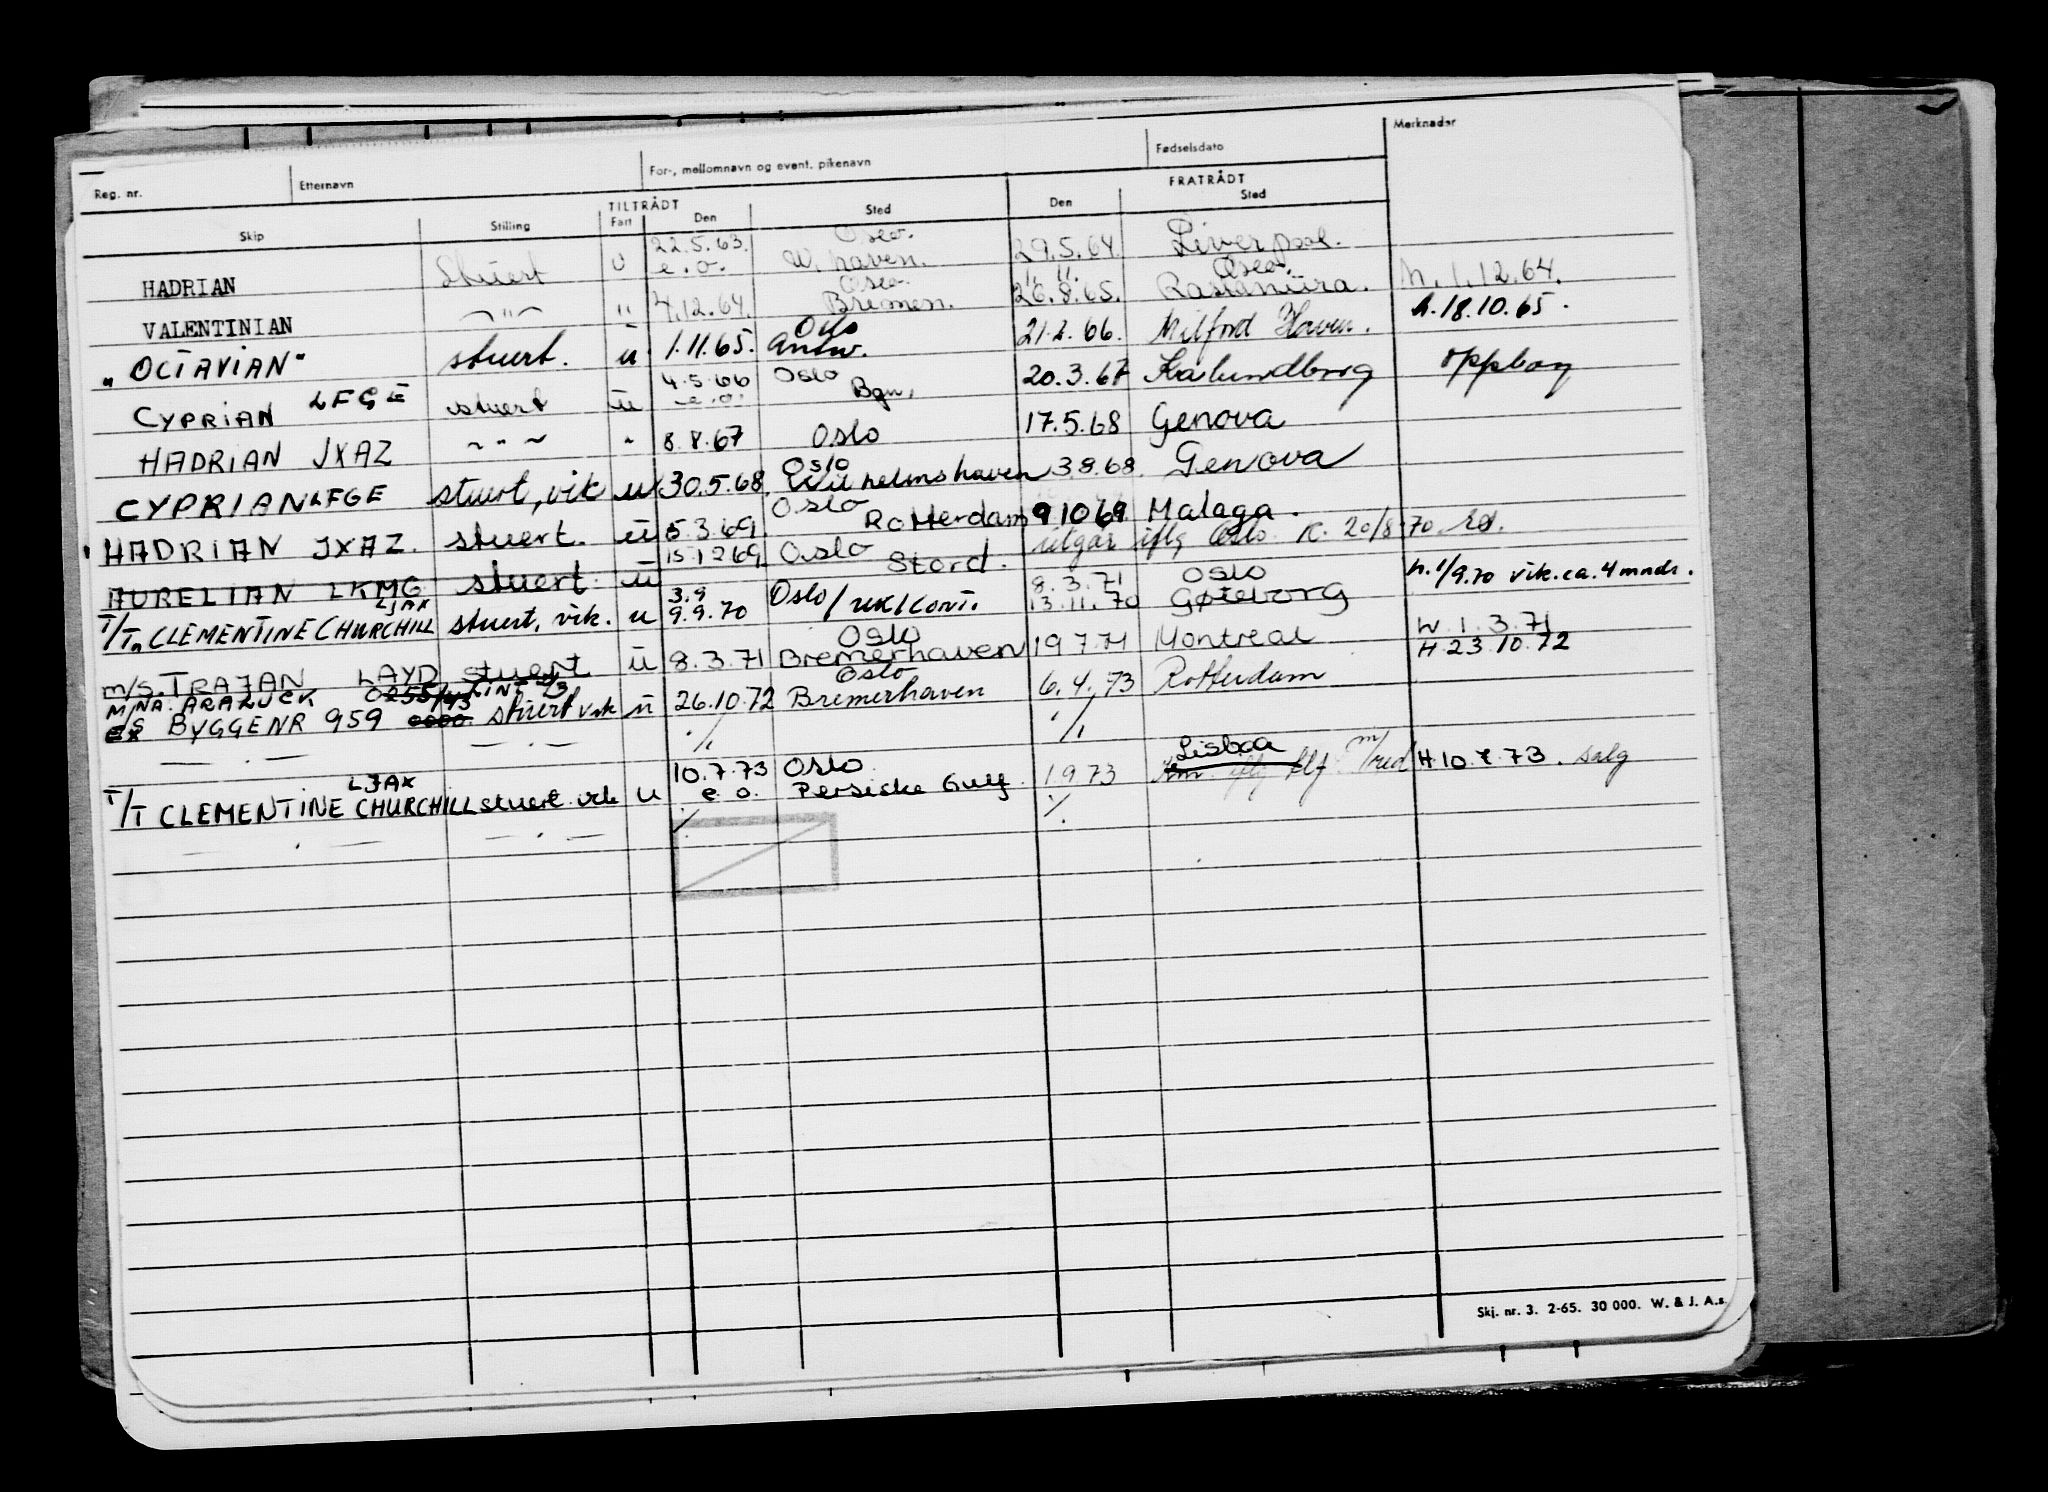 Reg. nr. Etternavn For-, mellomnavn og event. pikenavn Fødselsdato Merknader
TILTRÅDT FRATRÅDT
Skip Stilling Fart Den Sted Den Sted
22.5.63. Oslo.
HADRIAN Stuert u e.o. W. haven. 29.5.64. Liverpool.
Oslo. " " Oslo.
VALENTINIAN - " - " 4.12.64. Bremen. 26.8.65. Rastanura. h. 1.12.64.
Oslo
"OCTAVIAN" stuert. u 1.11.65. Antw. 21.2.66. Milford Haven. h.18.10.65.
4.5.66 Oslo
CYPRIAN LFGE stuert u e.o. Bgn, 20.3.67 Kalundborg oppbay
HADRIAN JXAZ ~ " ~ " 8.8.67 Oslo 17.5.68 Genova
Oslo
CYPRIAN LFGE stuert, vik u 30.5.68. Wilhelmshaven 3.8.68. Genova
Oslo
HADRIAN JXAZ. stuert. u 5.3.69. Rotterdam 9.10.69 Malaga.
AURELIAN LKMG stuert. u 15.12.69. Oslo Stord. utgår iflg Oslo. K. 20/8-70
LJAX 3.9 8.3.71 Oslo
T/T CLEMENTINE CHURCHILL stuert, vik. u 9.9.70 Oslo / 13.11.70 Gøteborg h. 1/9.70 vik. ca. 4 mndr.
Oslo
m/s. TRAJAN LAYD stuert u 8.3.71 Bremerhaven 19.7.71 Montreal W 1.3.71
M/NA. ARALUCK 0255/43 Oslo H 23.10.72
BYGGENR 959 stuert vik u 26.10.72 Bremerhaven 6.4.73 Rotterdam
— . — — . — ./. ./.
LJAX 10.7.73 Oslo Lisboa
T/T CLEMENTINE CHURCHILL stuert vik u e.o. Persiske Gulf. 1.9.73 iflg tlf. m/red H 10.7.73. salg
— . — — . — ./. ./.
Skj. nr. 3. 2-65. 30 000. W. & J. A.s.